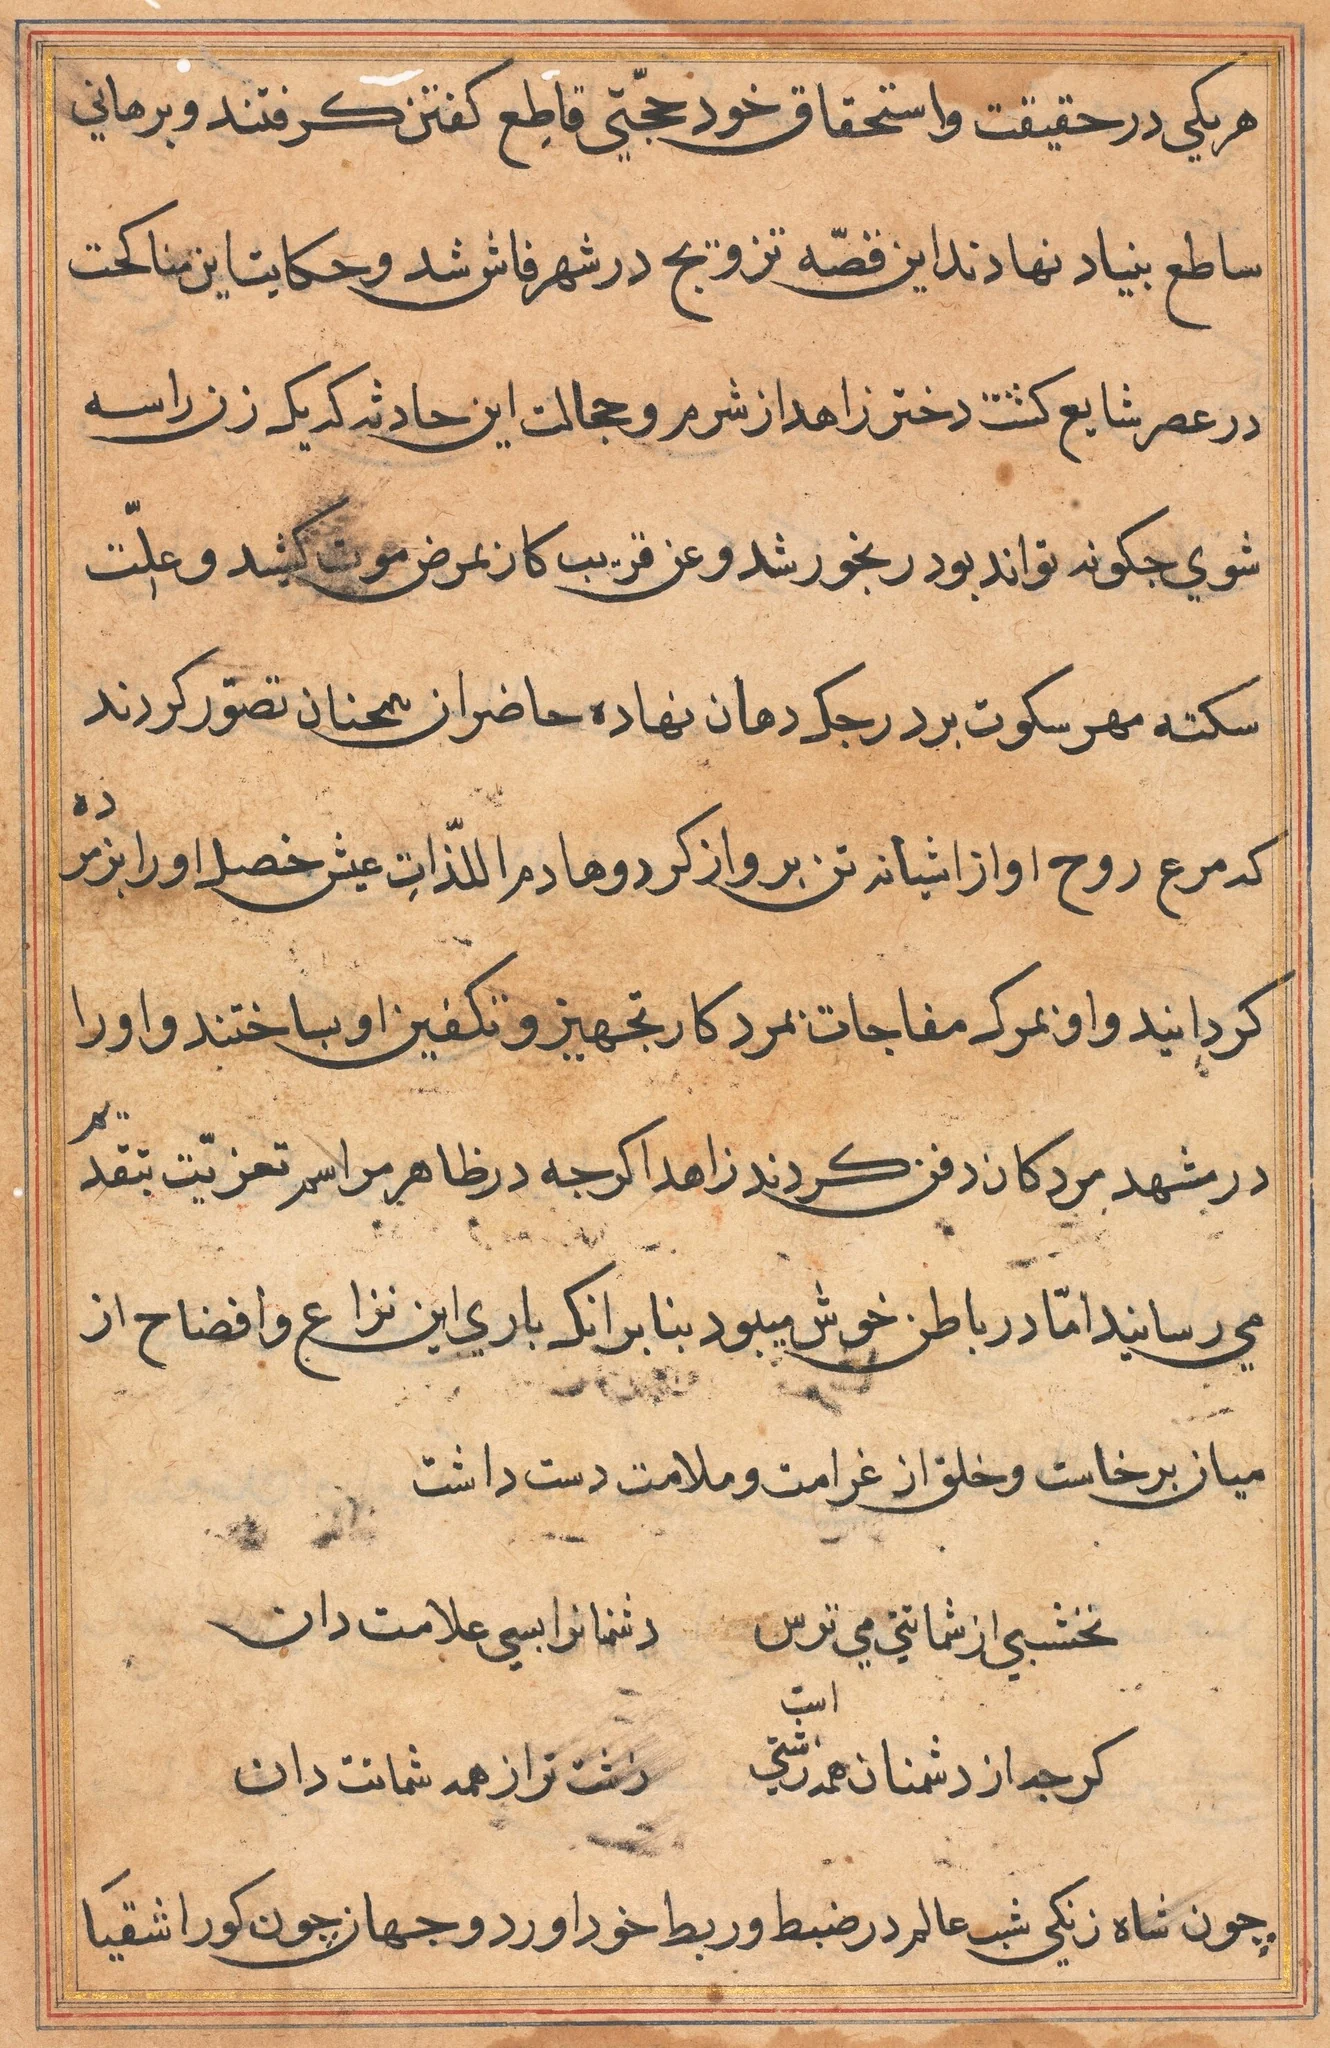 هر یکی در حقیقت و استحقاق خود حجّتي قاطع کفتن کرفتند و برهاني
ساطع بنیاد نهادند این قصّه تزویج در شهر فاش شد و حکایت این مناکحت
در عصر شایع کشت دختر زاهد از شرم و خجالت این حادثه که یک زن را سه
شوي جکونه تواند بود رنجور شد و عن قریب کار بمرض موت کشد و علّت
سکته مهر سکوت بر درجک دهان نهاده حاضران همجنان تصوّر کردند
که مرغ روح او از اشیانه تن برواز کرد و هادم اللذّاتِ عیش خصل او را بزمرده
کردانید و او بمرک مفاجات بمرد کار تجهیز و تکفین او بساختند و او را
در مشهد مردکان دفن کردند زاهد اکرجه در ظاهر مراسم تعزیّت بتقدیم
مي رسانید امّا در باطن خوش میبود بنا بر انک باري این نزاع و افضاح از
میان برخاست و خلق از غرامت و ملامت دست داشت
نخشبي از شماتتي مي ترس دشمنانرا بسي علامت دان
کرجه از دشمنان همه زشتي است زشت تر از همه شماتت دان
چون شاه زنکي شب عالم در ضبط و ربط خود اورد و جهان چون کور اشقیا